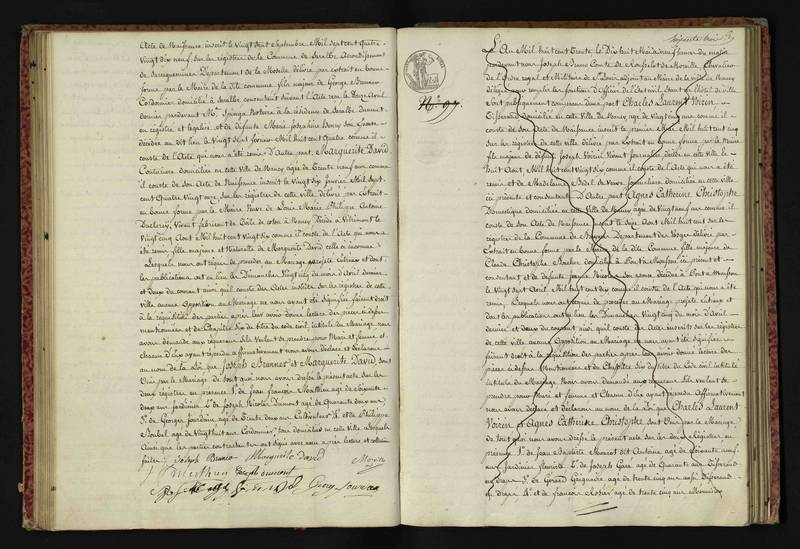 Acte de Naissance inscrit le Vingt sept Septembre Mil sept cent Quatre
Vingt dix neuf, sur les registres de la Commune de Sarralbe Arrondissement
de Sarreguemines Département de la Moselle délivré par extrait en bonne
forme par le Maire de la dite commune fils majeur de George
Cordonnier domicilié à Sarralbe consentant suivant l'Acte reçu le Avril
dernier pardevant Me Notaire à la résidence de Sarralbe dûment
en registré et légalisé et de défunte Marie Joséphine son Epouse
décédée au dit lieu le Vingt sept Mil huit cent Quatre comme il
conste de l'Acte qui nous a été remis D'Autre part, Marguerite David
Couturière domiciliée en cette Ville de Nancy âgée de Trente neuf ans comme
il conste de son Acte de Naissance inscrit le Vingt six Février Mil sept
cent Quatre Vingt onze sur les registres de cette ville délivré par extrait
en bonne forme par le Maire Veuve de Louis Marie Philippe Antoine
Vivant fabricant de Toile de coton à Nancy décédé à
Vingt cinq Août Mil huit cent Vingt six comme il conste de l'Acte qui nous a
été remis, fille majeure et Naturelle de Marguerite David celle ci inconnue
Lesquels nous ont requis de procéder au Mariage projeté entreux et dont
les publications ont eu lieu les Dimanches Vingt cinq du mois d'Avril dernier
et Deux du courant ainsi qu'il conste des Actes insérés sur les registres de cette
ville aucune Opposition au Mariage ne nous ayant été signifiée faisant droit
à la réquisition des parties après leur avoir donné lecture des pièces cidessus
mentionnées et du Chapitre Six du titre du code civil intitulé du Mariage nous
avons demandé aux requérants s'ils Veulent se prendre pour Mari et femme et
chacun d'eux ayant répondu affirmativement nous avons déclaré et déclarons
au nom de la Loi que Joseph Bronner et Marguerite David sont
Unis par le Mariage de tout quoi nous avons dressé le présent acte sur les
deux registres en présence 1° de Jean François Matthieu âgé de Soixante
deux ans Jardinier 2° de Joseph Nicolas Dumont âgé de Quarante deux ans
3° de Georges Jourdain âgé de Trente deux ans Cultivateurs 4° et de Philippe
âgé de Vingt huit ans Cordonnier tous domiciliés en cette ville
Ainsi que les parties contractantes ont signé avec nous après lecture et collation
faites Joseph Marguerite David
Joseph Dumont
L'An Mil huit cent Trente, le Dix huit Mai à neuf heures du matin
pardevant nous Joseph Bruno Comte de Chevalier
de l'Ordre royal et Militaire de St Louis adjoint au Maire de la ville de Nancy
délégué pour remplir les fonctions d'Officier de l'état civil dans l'Hôtel de Ville
sont publiquement comparus d'une part Charles Laurent Voirin
N°. 97.
domicilié en cette Ville de Nancy âgé de Vingt cinq ans comme il
conste de son Acte de Naissance inscrit le premier Mai Mil huit cent cinq
sur les registres de cette ville délivré par Extrait en bonne forme par le Maire
fils majeur de défunt Joseph Voirin Vivant Journalier décédé en cette Ville le
huit Août Mil huit cent Vingt six comme il conste de l'Acte qui nous a été
remis et de Madeleine sa Veuve Journalière domiciliée en cette ville
ici présente et consentante D'Autre part Agnès Catherine Christophe
Domestique domiciliée en cette Ville de Nancy âgée de Vingt neuf ans comme il
conste de son Acte de Naissance inscrit le Août Mil huit cent un sur les
registres de la Commune de Département des Vosges délivré par
Extrait en bonne forme par le Maire de la dite Commune fille majeure de
Claude Christophe domicilié à Pont à Mousson ici présent et
consentant et de défunte Jeanne Nicolas son épouse décédée à Pont à Mousson
le Vingt sept Août Mil huit cent dix comme il conste de l'Acte qui nous a été
remis, Lesquels nous ont requis de procéder au Mariage projeté entreux et
dont les publications ont eu lieu les Dimanches Vingt cinq du mois d'Avril
dernier et deux du courant ainsi qu'il conste des Actes inscrits sur les registres
de cette ville, aucune Opposition au Mariage ne nous ayant été signifiée
faisant droit à la réquisition des parties après leur avoir donné lecture des
pièces ci dessus Mentionnées et du Chapitre Six du titre du Code civil intitulé
intitulé du Mariage Nous avons demandé aux requérants s'ils veulent se
prendre pour Mari et femme et Chacun d'eux ayant répondu Affirmativement
nous avons déclaré et déclarons au nom de la Loi que Charles Laurent
Voirin et Agnès Catherine Christophe sont Unis par le Mariage
de tout quoi nous avons dressé le présent acte sur les deux Registres en
présence 1° de Jean Baptiste Moriot dit Antoine âgé de Soixante neuf
ans Jardinier fleuriste 2° de Joseph Gare âgé de Quarante ans
3° de Gérard âgé de trente cinq ans aussi
4° et de François Rosier âgé de trente cinq ans Menuisier